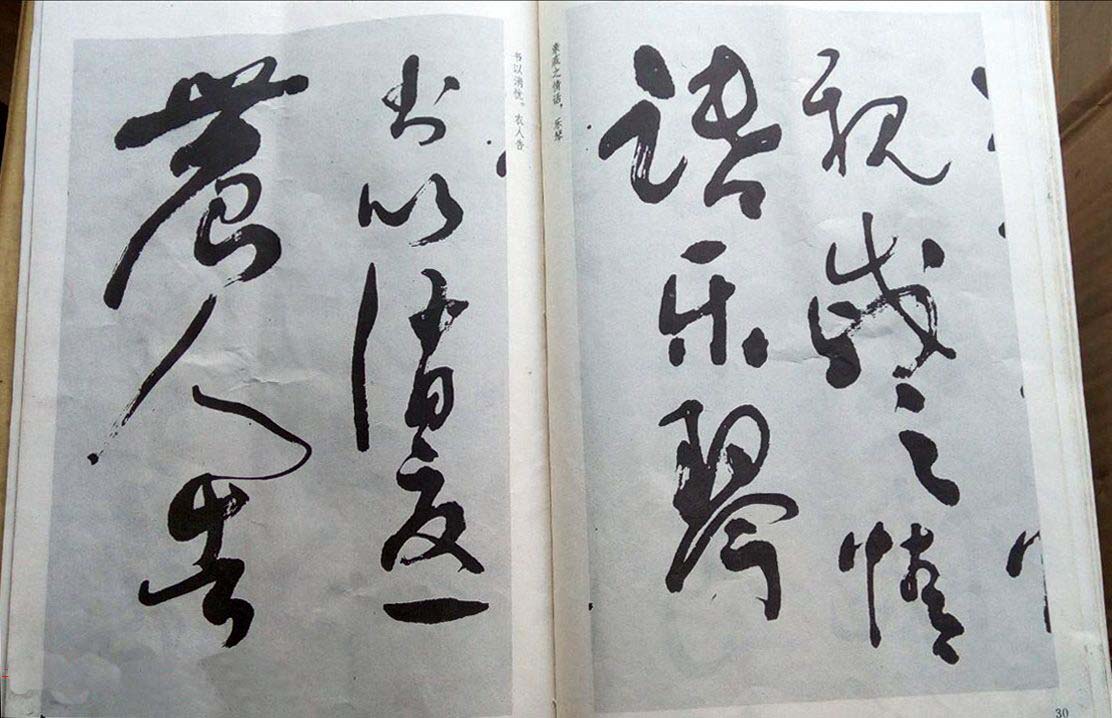 親戚之情
話樂琴
亲戚之情话，乐琴
书以消忧。农人告
書以消憂
農人告
30